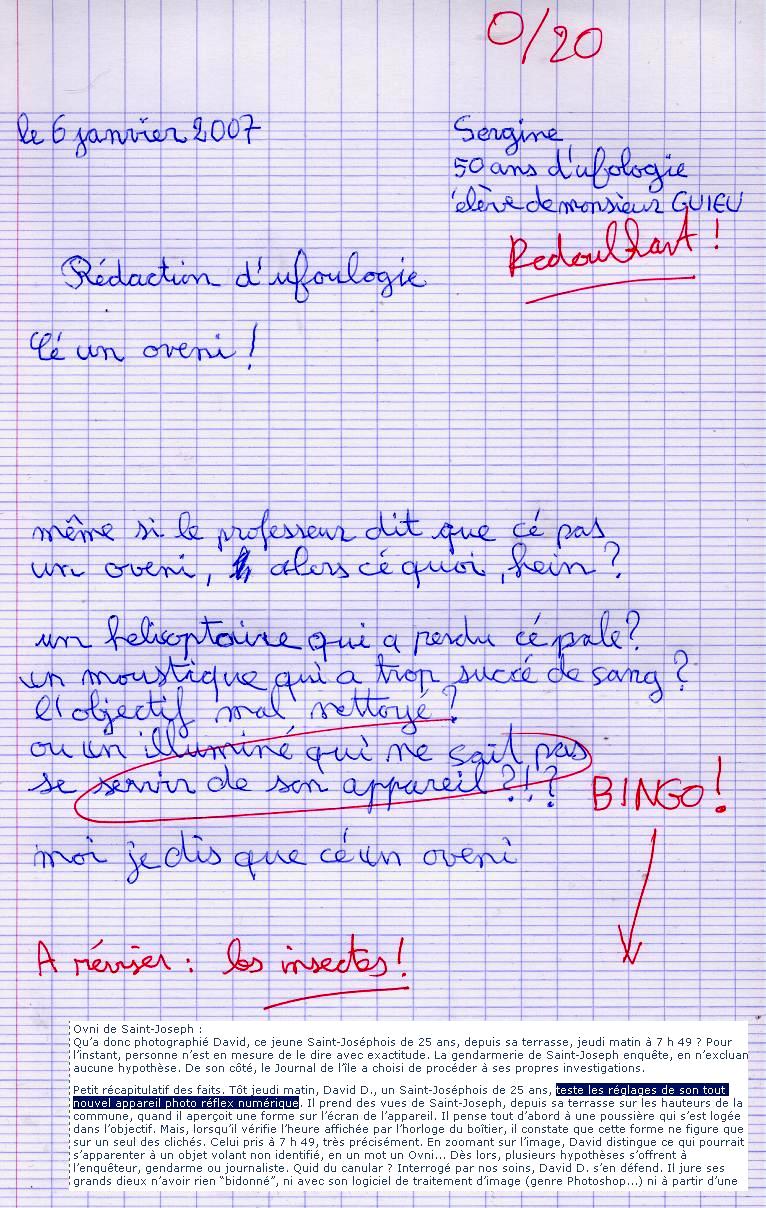 0/20
le 6 janvier 2007
Sergine
50 ans d'ufologie
élève de monsieur GUIEU
Redoublant !
Rédaction d'ufoulogie
Cé un oveni !
même si le professeur dit que cé pas
un oveni, alors cé quoi, hein ?
un helicoptaire qui a perdu cé pale ?
un moustique qui a trop succé de sang ?
l'objectif mal nettoyé ?
ou un illuminé qui ne sait pas
se servir de son appareil ?!?
BINGO !
moi je dis que cé un oveni
A réviser : les insectes !
Ovni de Saint-Joseph :
Qu'a donc photographié David, ce jeune Saint-Joséphois de 25 ans, depuis sa terrasse, jeudi matin à 7 h 49 ? Pour
l'instant, personne n'est en mesure de le dire avec exactitude. La gendarmerie de Saint-Joseph enquête, en n'excluan
aucune hypothèse. De son côté, le Journal de l'île a choisi de procéder à ses propres investigations.
Petit récapitulatif des faits. Tôt jeudi matin, David D., un Saint-Joséphois de 25 ans, teste les réglages de son tout
nouvel appareil photo réflex numérique. Il prend des vues de Saint-Joseph, depuis sa terrasse sur les hauteurs de la
commune, quand il aperçoit une forme sur l'écran de l'appareil. Il pense tout d'abord à une poussière qui s'est logée
dans l'objectif. Mais, lorsqu'il vérifie l'heure affichée par l'horloge du boîtier, il constate que cette forme ne figure que
sur un seul des clichés. Celui pris à 7 h 49, très précisément. En zoomant sur l'image, David distingue ce qui pourrait
s'apparenter à un objet volant non identifié, en un mot un Ovni... Dès lors, plusieurs hypothèses s'offrent à
l'enquêteur, gendarme ou journaliste. Quid du canular ? Interrogé par nos soins, David D. s'en défend. Il jure ses
grands dieux n'avoir rien “bidonné”, ni avec son logiciel de traitement d'image (genre Photoshop...) ni à partir d'une